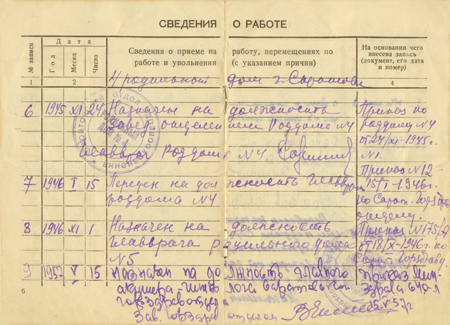 СВЕДЕНИЯ О РАБОТЕ
№ записи
Дата
Год
Месяц
Число
Сведения о приеме на работу, перемещениях по работе и увольнении (с указанием причин)
На основании чего внесена запись (документ, его дата и номер)
1 2 3 4
4 родильной дом г. Саратова
6 1945 XI 24 Назначен на должность
Роддома №4
Главврач Роддома №4
Приказ по роддому №4 от 24/XI-1945г. №1.
7 1946 I 15 Переведен на должность Главврача
роддома №4
Приказ №12 15/I-1946г. по Сарат.
8 1946 XI 1 Назначен на должность
Главврача родильного дома
№5
Приказ №175
от 18/X-1946г. по
9 1952 V 15 назначен на должность главного
акушера-гинеколога Саратовского
горздравотдела
Зав. горздравотделом
приказ
6